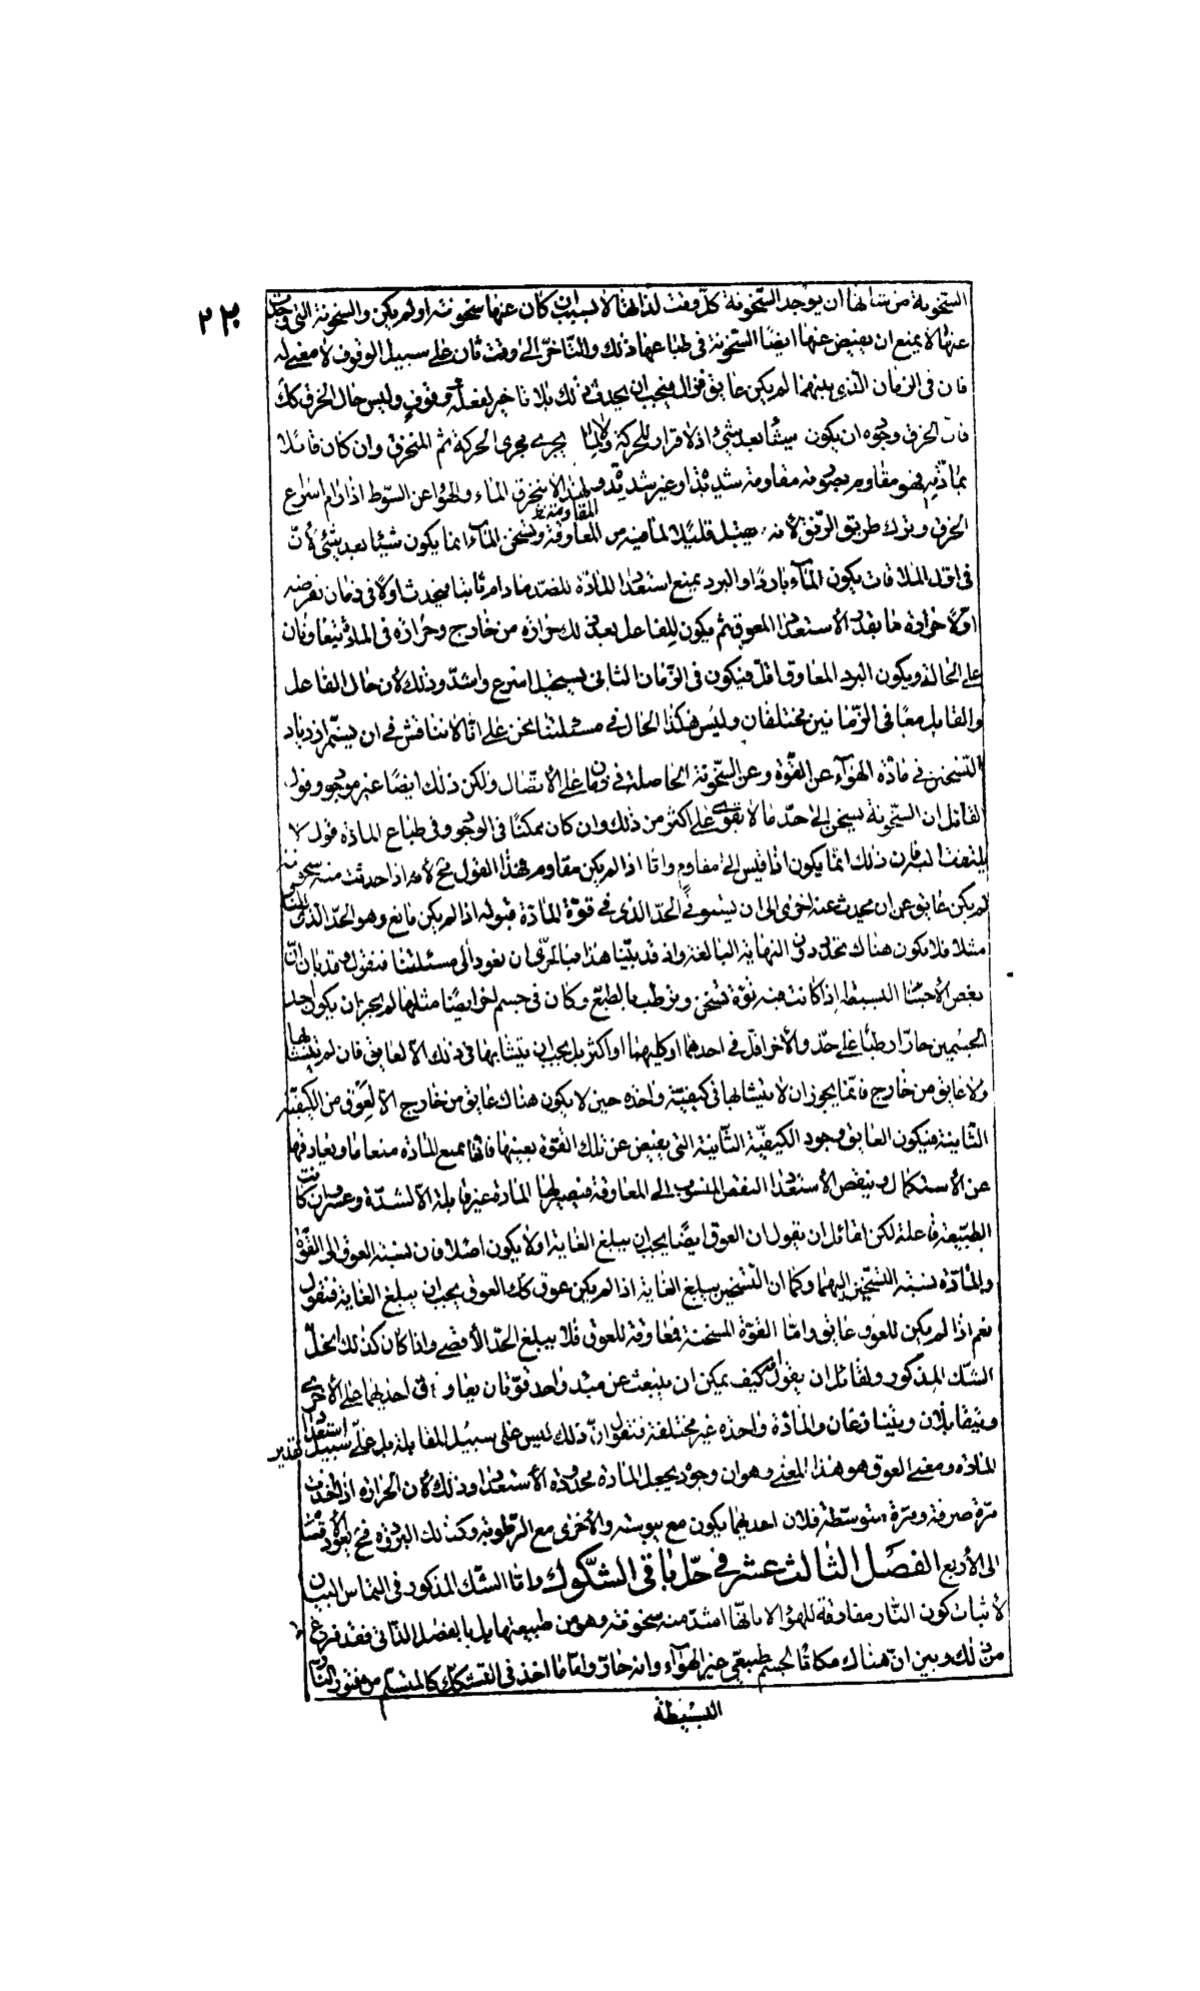 ٢٢٠
السخونة من شانها ان يوجد السخونة كل وقت لذاتها لا لسبب ان كان عنها سخونة او لم يكن والسخونة التى وجدت
عنها لا يمنع ان يفيض عنها ايضا السخونة فى طباعها ذلك والتاخر الى وقت ثان على سبيل الوقوف لا معنى له
فان فى الزمان الذى بينهما لم يكن عايق فزال فيجب ان يحدث ذلك بلا تاخير لفعله وقوف وليس حال الخرق كك
فان الخرق وجوه ان يكون شيئا بعد شئ اذ لا قرار للحركة ولا لما يجرى مجرى الحركة ثم المنخرق وان كان قابلا
بمادته فهو مقاوم بصورته مقاومة شديدة او غير شديدة ولهذا لا ينخرق الماء والهواء عن السوط اذا رام اسراع
الخرق وترك طريق الرفق لانه يقبل قليلا لما فيه من المعاوقة وتسخن الماء انما يكون شيئا بعد شئ لان
المقاومة
فى اول الملاقات يكون الماء باردا والبرد يمنع استعداد المادة للضد ما دام ثابتا فيحدث اولا فى زمان تعرضه
اولا حرارة ما بقدر الاستعداد المعوق ثم يكون للفاعل بعد ذلك حرارة من خارج وحرارة فى المادة يتعاونان
على الحالة ويكون البرد المعاوق اقل فيكون فى الزمان الثانى يستحيل اسرع واشد وذلك لان حال الفاعل
والقابل معا فى الزمانين مختلفان وليس هكذا الحال فى مسئلتنا نحن على انا لا نناقش فى ان يستمر ازدياد
التسخن فى مادة الهواء عن القوة وعن السخونة الحاصلة فى زمان على الاتصال ولكن ذلك ايضا غير موجود وقول
القائل ان السخونة يسخن الى حد ما لا تقوى على اكثر من ذلك وان كان ممكنا فى الوجود وفى طباع المادة قول لا
يلتفت اليه فان ذلك انما يكون اذا قيس الى مقاوم واما اذا لم يكن مقاوم فهذا القول مح لانه اذا حدثت منه سخونة
لم يكن عايق عن ان يحدث عنه اخرى الى ان يستوفى الحد الذى فى قوة المادة قبوله اذا لم يكن مانع وهو الحد الذى للنار
مثلا فلا يكون هناك محدد دون النهاية البالغة واذ قد بينا هذا فبالحرى ان نعود الى مسئلتنا فنقول قد بان ان
بعض الاجسام البسيطة اذا كانت فيه قوة تسخن وترطب بالطبع وكان فى جسم اخر ايضا مثلها لم يجز ان يكون احد
الجسمين حارا رطبا على حد والاخر اقل فى احدهما او كليهما او اكثر بل يجب ان يتشابها فى ذلك الا لعايق فان لم يتشابها
ولا عايق من خارج فانما يجوز ان لا يتشابها فى كيفية واحدة حين لا يكون هناك عايق من خارج الا لعوق من الكيفية
الثانية فيكون العايق وجود الكيفية الثانية التى يفيض عن تلك القوة بعينها فانها تمنع المادة منعا ما ويعاوقها
عن الاستكمال وينقص الاستعداد النقص المنسوب الى المعاوقة فيصير لها المادة غير قابلة الا لشدة وعسر وان كانت
الطبيعة فاعلة لكن لقائل ان يقول ان العوق ايضا يجب ان يبلغ الغاية او لا يكون اصلا فان نسبة العوق الى القوة
والمادة نسبة التسخين اليهما وكما ان التسخين يبلغ الغاية اذا لم يكن عوق كك العوق يجب ان يبلغ الغاية فنقول
نعم اذا لم يكن للعوق عايق واما القوة المسخنة فمعاوقة للعوق فلا يبلغ الحد الاقصى واذا كان كذلك انحل
الشك المذكور ولقائل ان يقول كيف يمكن ان ينبعث عن مبدء واحد قوتان يعاوق احديهما على الاخرى
ويتقابلان ويتنازعان والمادة واحدة غير مختلفة فنقول ان ذلك ليس على سبيل المقابلة بل على سبيل تقدير استعداد
المادة ومعنى العوق هو هذا المعنى وهو ان وجود يجعل المادة محدودة الاستعداد وذلك لان الحرارة اذا اخذت
مرة صرفة ومرة متوسطة فلان احديهما يكون مع يبوسة والاخرى مع الرطوبة وكذلك البرودة فح يعود الاقسام
الى الاربع الفصل الثالث عشر فى حل باقى الشكوك واما الشك المذكور فى التماس البيان
لاثبات كون النار مفارقة للهواء لا بانها اشد منه سخونة وهو من طبيعتها بل بالفصل الذاتى فقد فرغ
من ذلك وبين ان هناك مكانا لجسم طبيعى غير الهواء وانه حار واما ما اخذ فى التشكك كالمتسلم من فتور النار
البسيطة